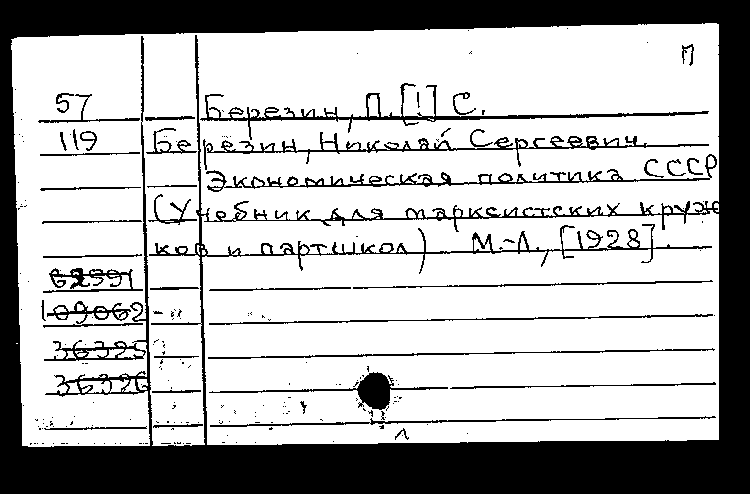 П
57 Березин, П.[!] С.
119 Березин, Николай Сергеевич.
Экономическая политика СССР
(Учебник для марксистских круж
ков и партшкол) М.-Л., [1928].
62591
109062 - "
36325
36326